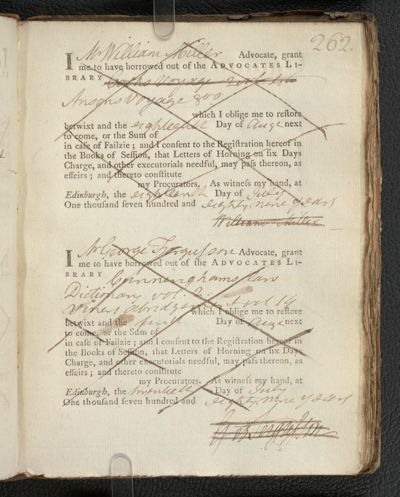 262.
I Mr William Miller Advocate, grant
me to have borrowed out of the ADVOCATES LI-
BRARY Cooks Voyage
Ansons Voyage 8vo
which I oblige me to restore
betwixt and the eighteenth Day of Augt next
to come, or the Sum of
in case of Failzie; and I consent to the Registration hereof in
the Books of Session, that Letters of Horning on six Days
Charge, and other executorials needful, may pass thereon, as
effeirs; and thereto constitute
my Procurators. As witness my hand, at
Edinburgh, the eighteenth Day of July
One thousand seven hundred and eighty nine years
William Miller
I Mr George Fergusson Advocate, grant
me to have borrowed out of the ADVOCATES LI-
BRARY Cunninghams Law
Dictionary vol. 2
Viners abridgt vol 14
which I oblige me to restore
betwixt and the Day of Augt next
to come, or the Sum of
in case of Failzie; and I consent to the Registration hereof in
the Books of Session, that Letters of Horning on six Days
Charge, and other executorials needful, may pass thereon, as
effeirs; and thereto constitute
my Procurators. As witness my hand, at
Edinburgh, the twentieth Day of July
One thousand seven hundred and eighty nine years